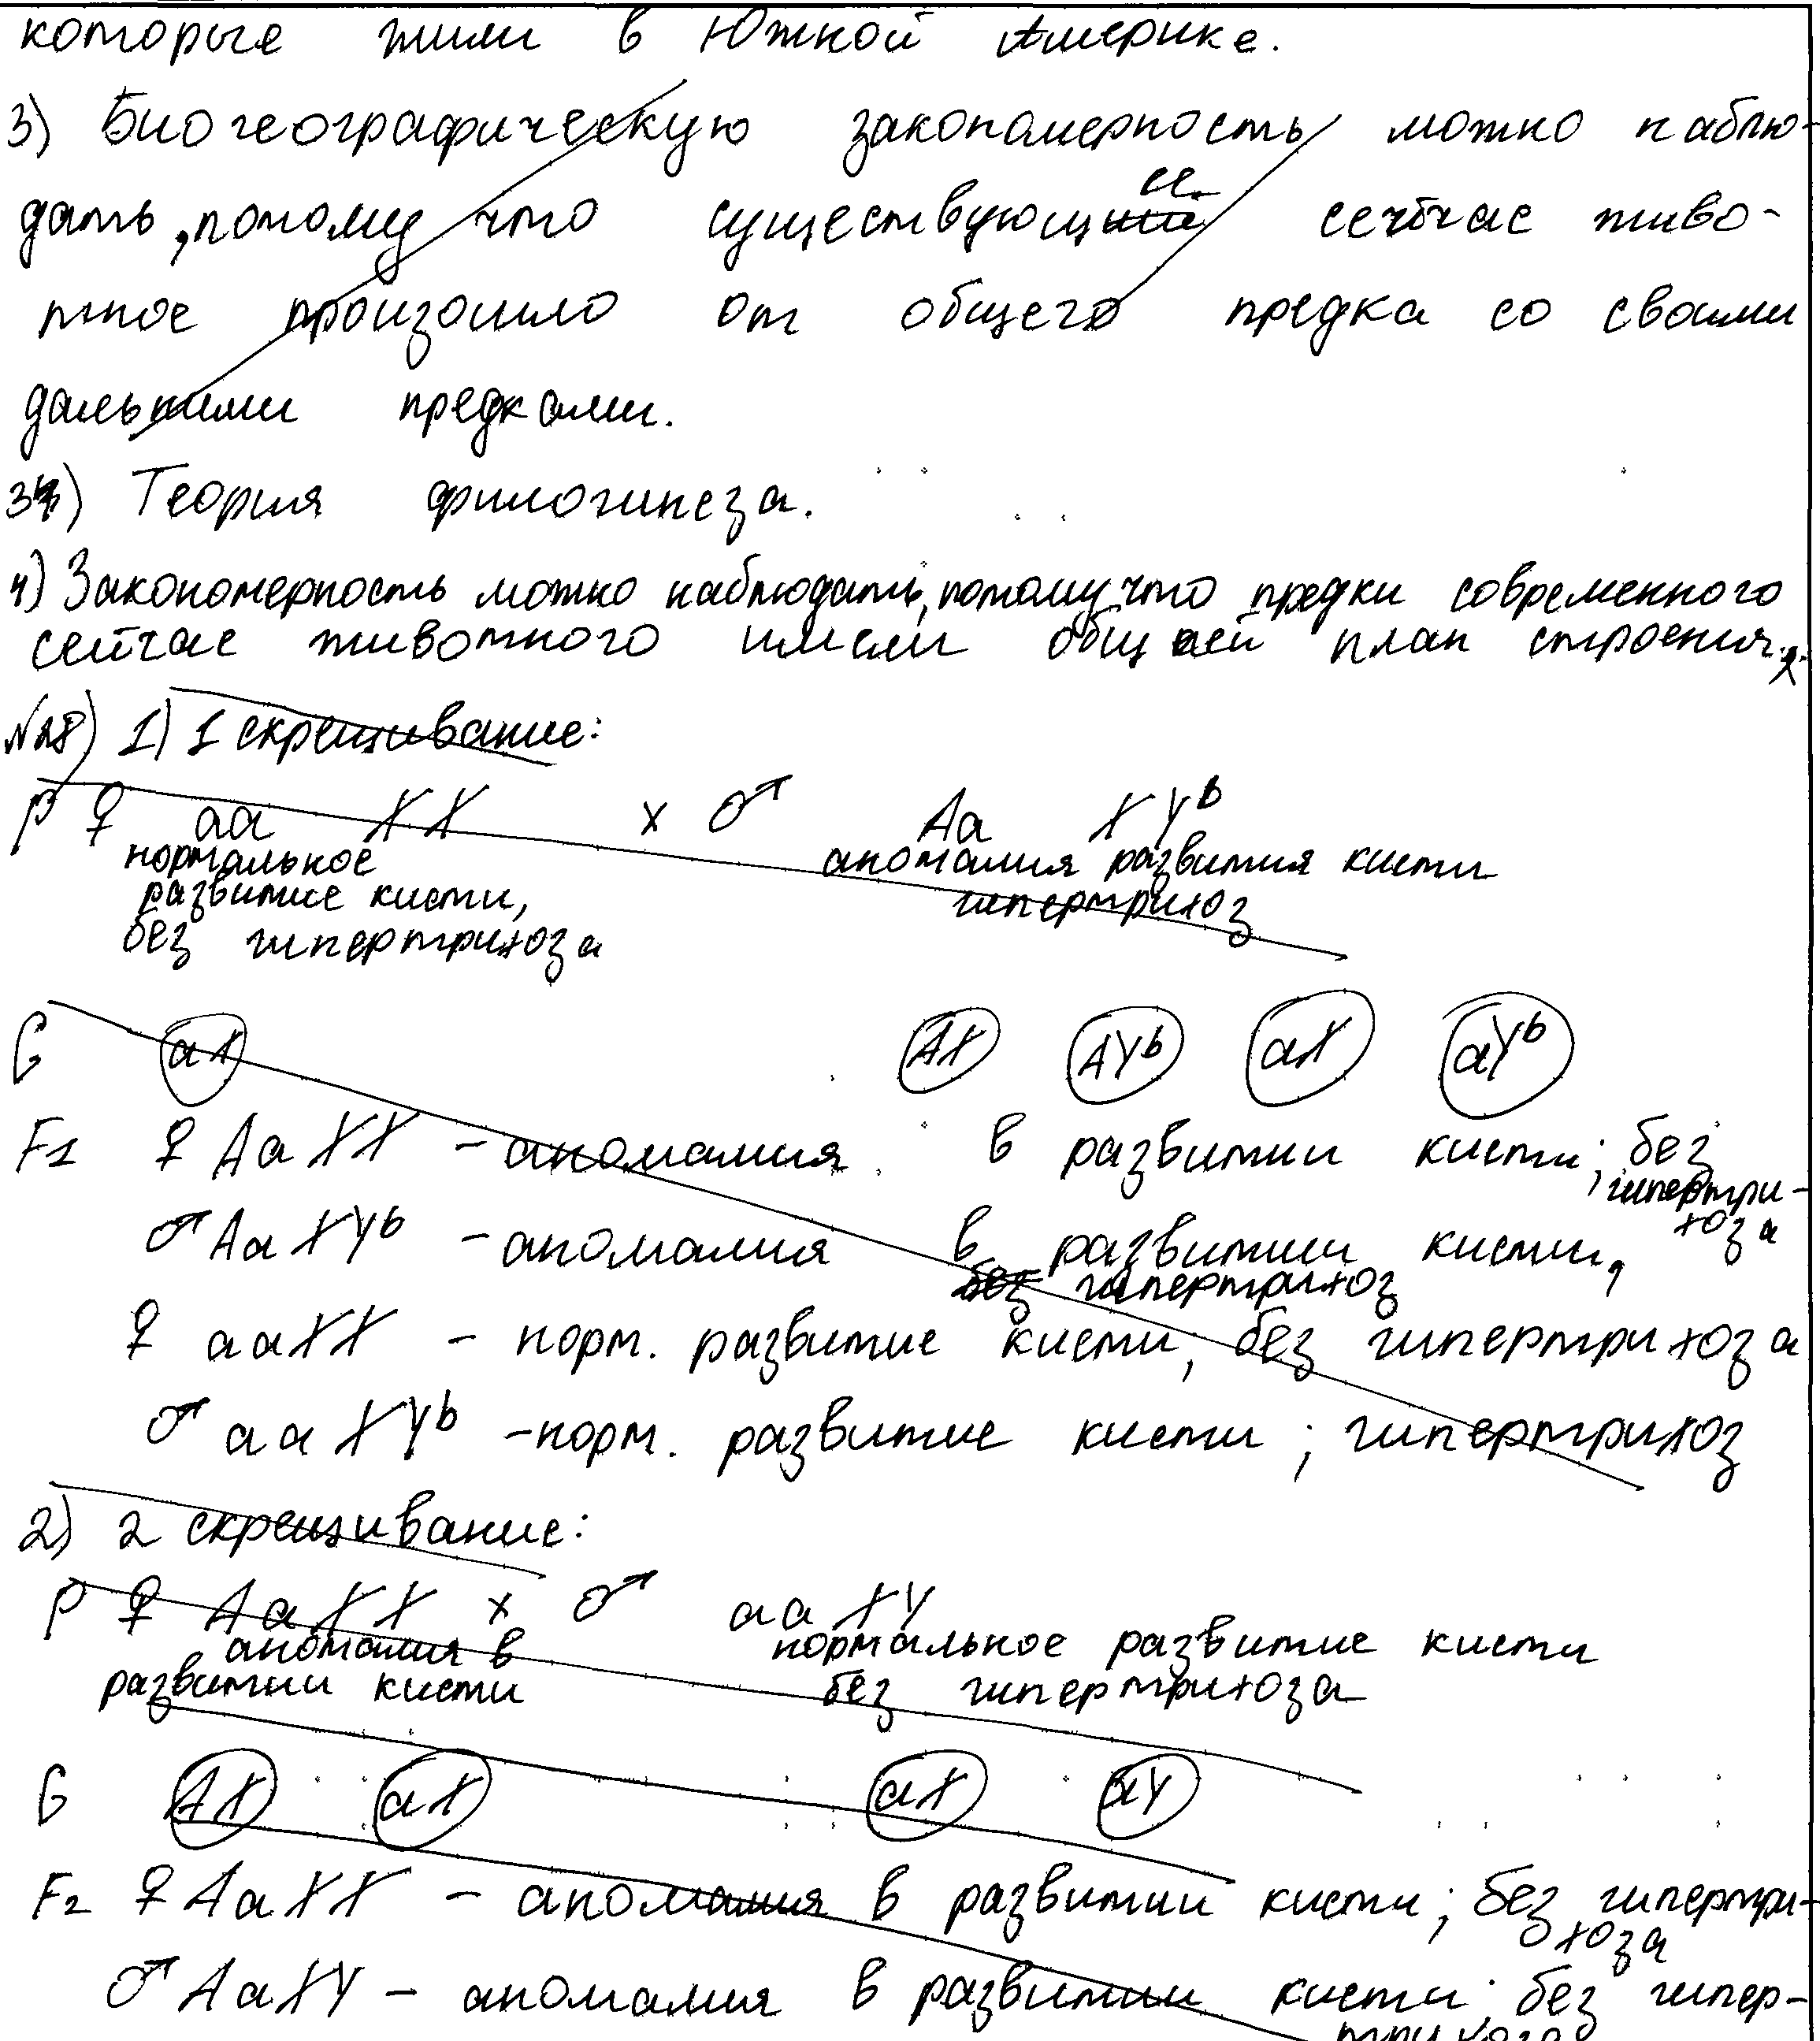 которые жили в Южной Америке.
3) Биогеографическую закономерность можно наблю-
дать, потому что существующее сейчас живо-
тное произошло от общего предка со своими
дальними предками.
3) Теория филогинеза.
4) Закономерность можно наблюдать, потому что предки современного
сейчас животного имели общий план строения.
№28) 1) 1 скрещивание:
P ♀ aa XX x ♂ Aa XYᵇ
нормальное развитие кисти, без гипертрихоза
аномалия развития кисти гипертрихоз
G aX AX AYᵇ aX aYᵇ
F1 ♀ AaXX – аномалия в развитии кисти; без гипертри-
хоза
♂ AaXYᵇ – аномалия в развитии кисти,
без гипертрихоз
♀ aaXX – норм. развитие кисти; без гипертрихоза
♂ aa XYᵇ – норм. развитие кисти; гипертрихоз
2) 2 скрещивание:
P ♀ AaXX x ♂ aaXY
аномалия в нормальное развитие кисти
развитии кисти без гипертрихоза
G AX aX aX aY
F2 ♀ AaXX – аномалия в развитии кисти; без гипертри-
хоза
♂ AaXY – аномалия в развитии кисти; без гипер-
трихоза